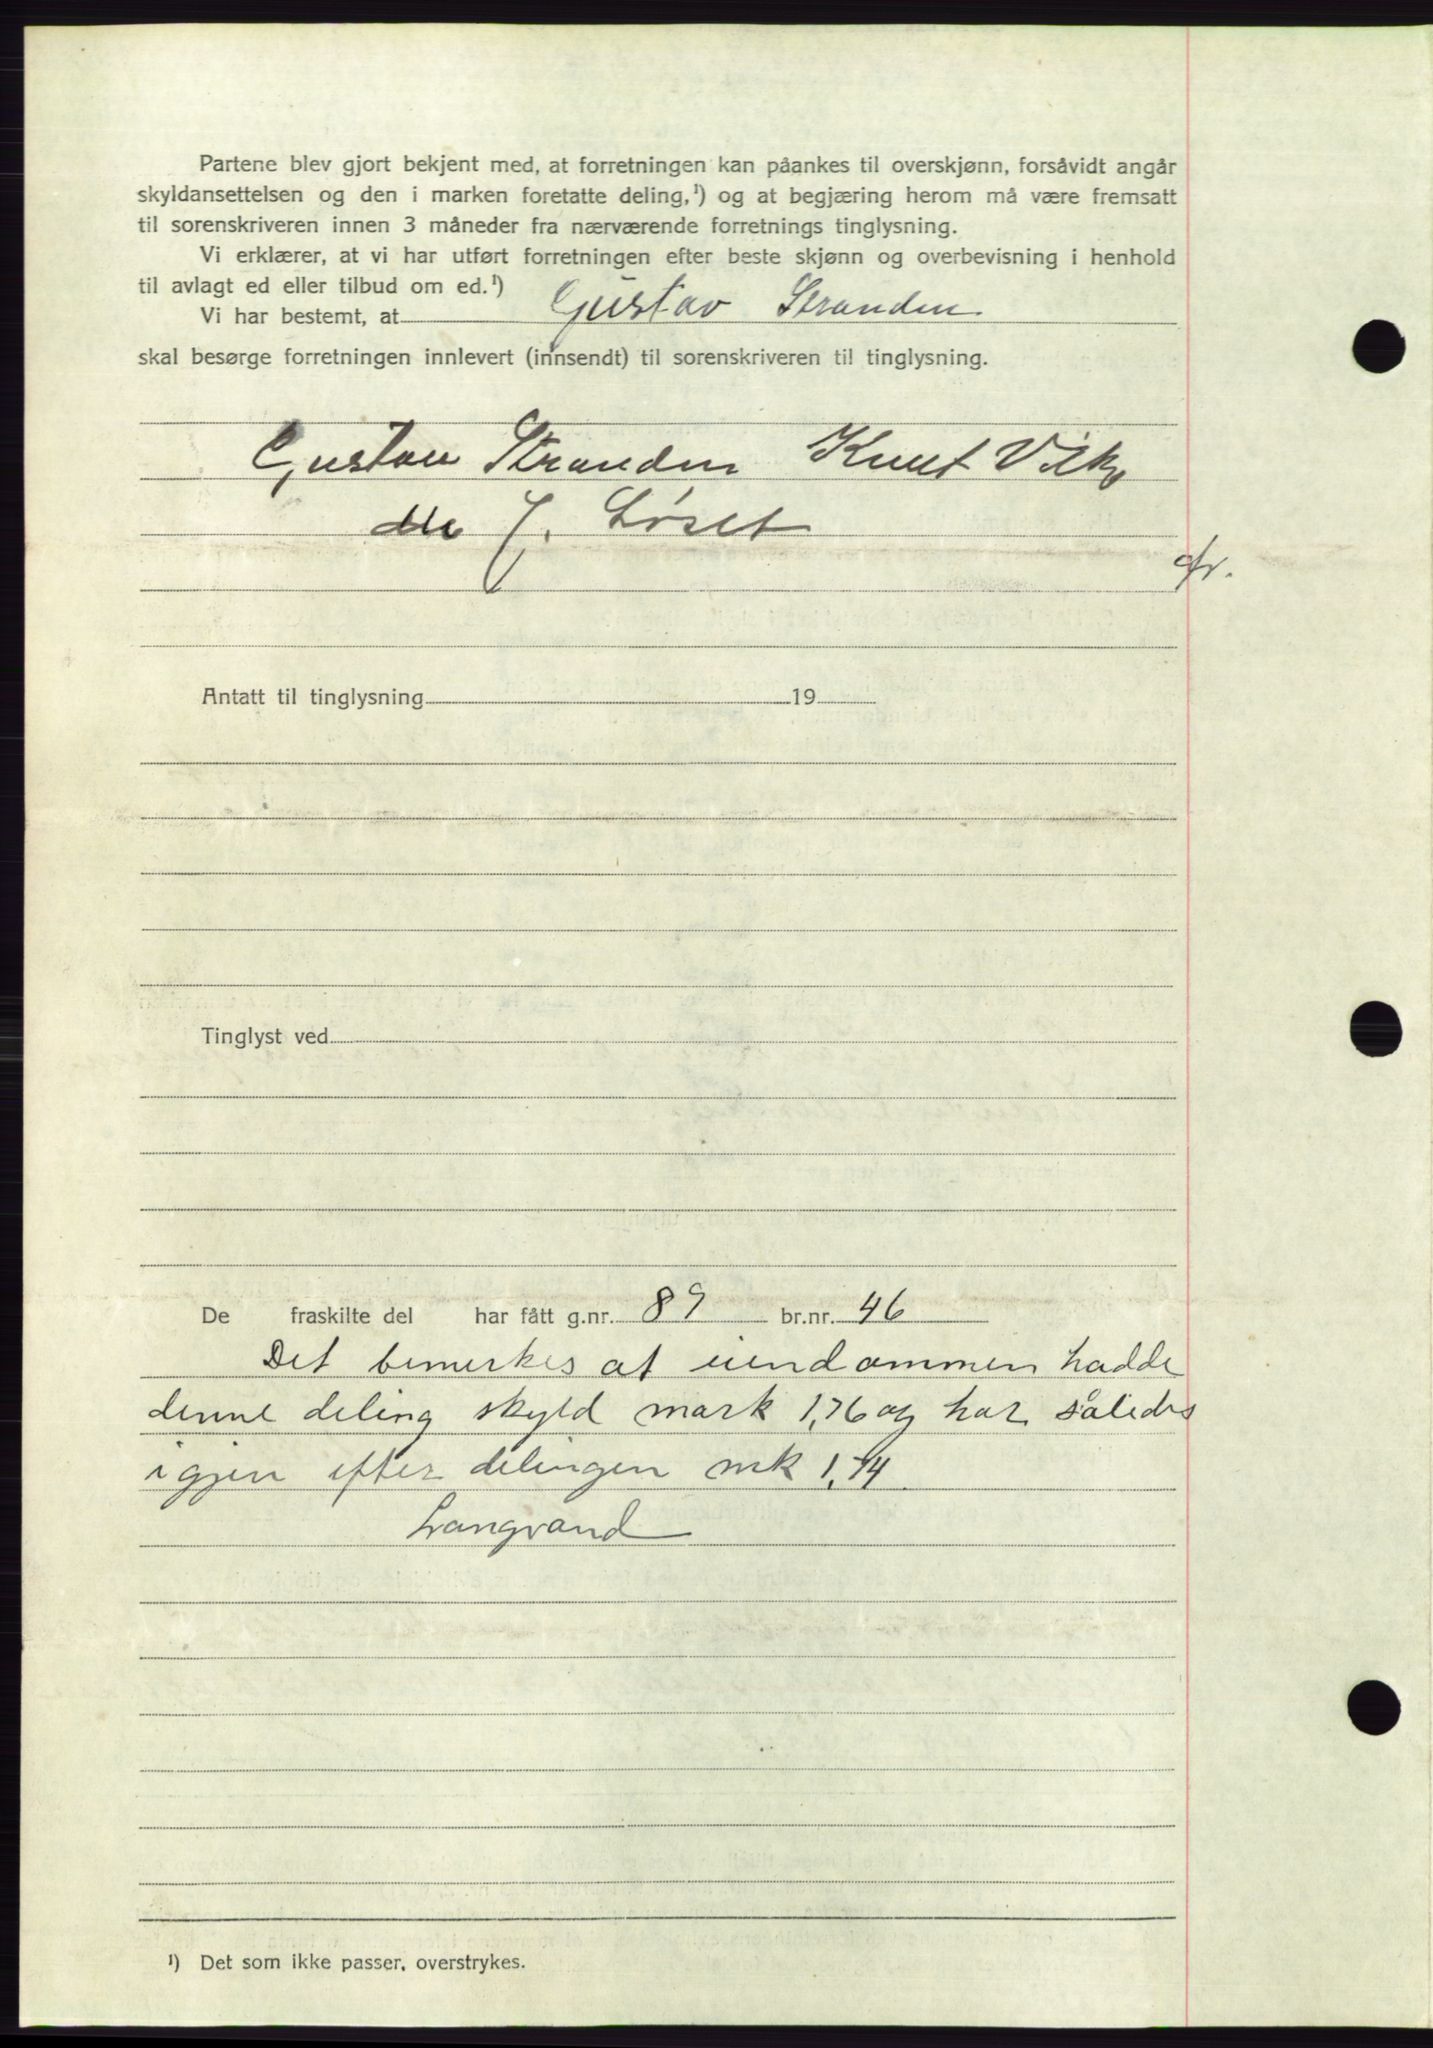 Partene blev gjort bekjent med, at forretningen kan påankes til overskjønn, forsåvidt angår
skyldansettelsen og den i marken foretatte deling,¹) og at begjæring herom må være fremsatt
til sorenskriveren innen 3 måneder fra nærværende forretnings tinglysning.
Vi erklærer, at vi har utført forretningen efter beste skjønn og overbevisning i henhold
til avlagt ed eller tilbud om ed.¹)
Vi har bestemt, at Gustav Stranden
skal besørge forretningen innlevert (innsendt) til sorenskriveren til tinglysning.
Gustav Stranden Knut Vik
J. Løset
Antatt til tinglysning 19
Tinglyst ved
De fraskilte del har fått g.nr. 89 br.nr. 46
Det bemerkes at eiendommen hadde
denne deling skyld mark 1,76 og har således
igjen efter delingen mk 1,74
Langvand
¹) Det som ikke passer, overstrykes.